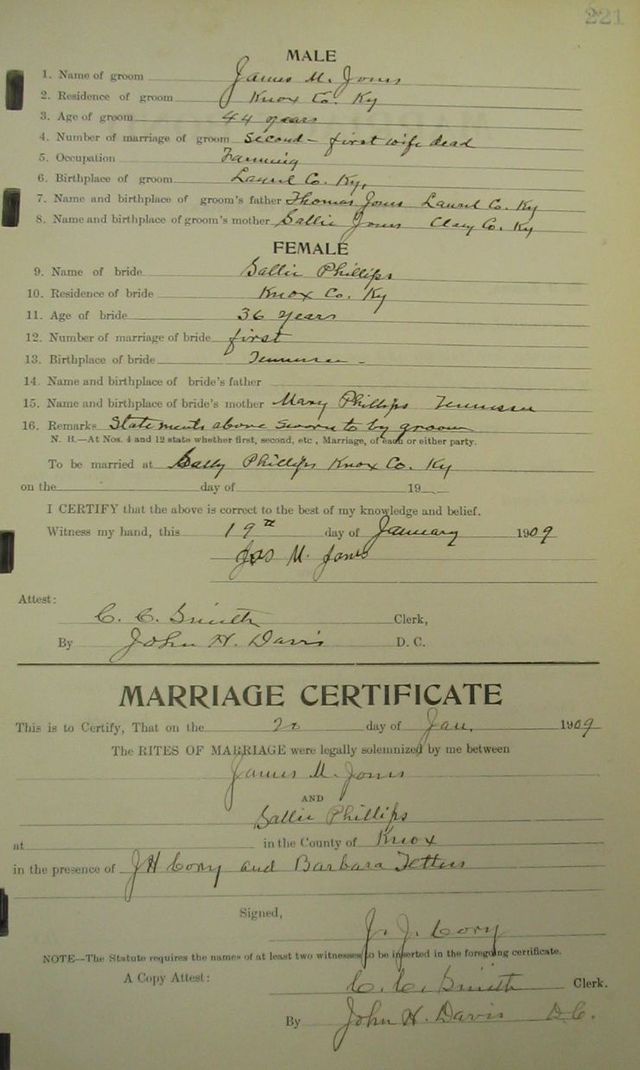 221
MALE
1. Name of groom James M. Jones
2. Residence of groom Knox Co. Ky
3. Age of groom 44 years
4. Number of marriage of groom Second - first wife dead
5. Occupation Farming
6. Birthplace of groom Laurel Co. Ky.
7. Name and birthplace of groom's father Thomas Jones Laurel Co. Ky
8. Name and birthplace of groom's mother Sallie Jones Clay Co. Ky
FEMALE
9. Name of bride Sallie Phillips
10. Residence of bride Knox Co. Ky
11. Age of bride 36 years
12. Number of marriage of bride first
13. Birthplace of bride Tennessee -
14. Name and birthplace of bride's father
15. Name and birthplace of bride's mother Mary Phillips Tennessee
16. Remarks Statements above sworn to by groom
N. B.—At Nos. 4 and 12 state whether first, second, etc , Marriage, of each or either party.
To be married at Sally Phillips Knox Co. Ky
on the day of 19
I CERTIFY that the above is correct to the best of my knowledge and belief.
Witness my hand, this 19th day of January 1909
Jas M. Jones
Attest:
C. C. Smith Clerk,
By John H. Davis D. C.
MARRIAGE CERTIFICATE
This is to Certify, That on the 20 day of Jan. 1909
The RITES OF MARRIAGE were legally solemnized by me between
James M. Jones
AND
Sallie Phillips
at in the County of Knox
in the presence of J H Cory and Barbara
Signed,
J. J. Cory
NOTE—The Statute requires the names of at least two witnesses to be inserted in the foregoing certificate.
A Copy Attest: C. C. Smith Clerk.
By John H. Davis D.C.